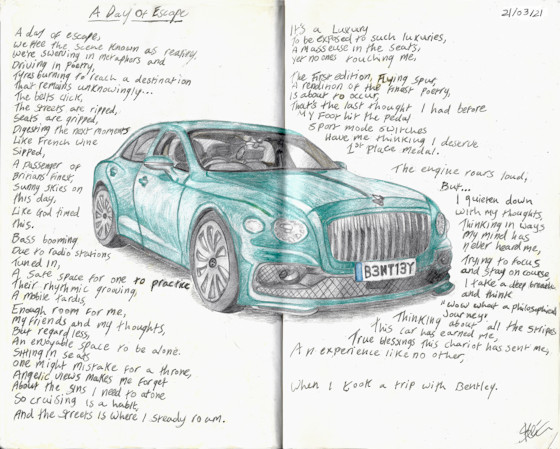 A Day Of Escape
A day of escape,
We flee the scene known as reality.
We're swerving in metaphors and
Driving in poetry,
Tyres burning to reach a destination
That remains unknowingly...
The belts click,
The streets are ripped,
Seats are gripped,
Digesting the next moments
Like French wine
Sipped,
A passenger of
Britains finest,
Sunny skies on
this day,
Like God timed
this.
Bass booming
Due to radio stations
tuned in,
A safe space for one to practice
Their rhythmic growing,
A mobile tardis
Enough room for me,
My friends and my thoughts,
But regardless,
An enjoyable space to be alone.
Sitting in seats
one might mistake for a throne,
Angelic views makes me forget
About the sins I need to atone
So cruising is a habit,
And the streets is where I steady roam.
21/03/21
It's a Luxury
To be exposed to such luxuries,
A masseuse in the seats,
Yet no ones touching me,
The First edition, Flying spur,
A rendition of the finest poetry,
Is about to occur,
That's the last thought I had before
My foot hit the pedal
Sport mode switches
Have me thinking I deserve
1st Place medal.
The engine roars loud,
But...
I quieten down
with my thoughts,
Thinking in ways
My mind has
never heard me,
Trying to focus
and stay on course
I take a deep breath
and think
"Wow what a philosophical
Journey!
Thinking about all the stripes
This car has earned me,
True blessings this chariot has sent me,
An experience like no other,
When I took a trip with Bentley.
B3NT13Y